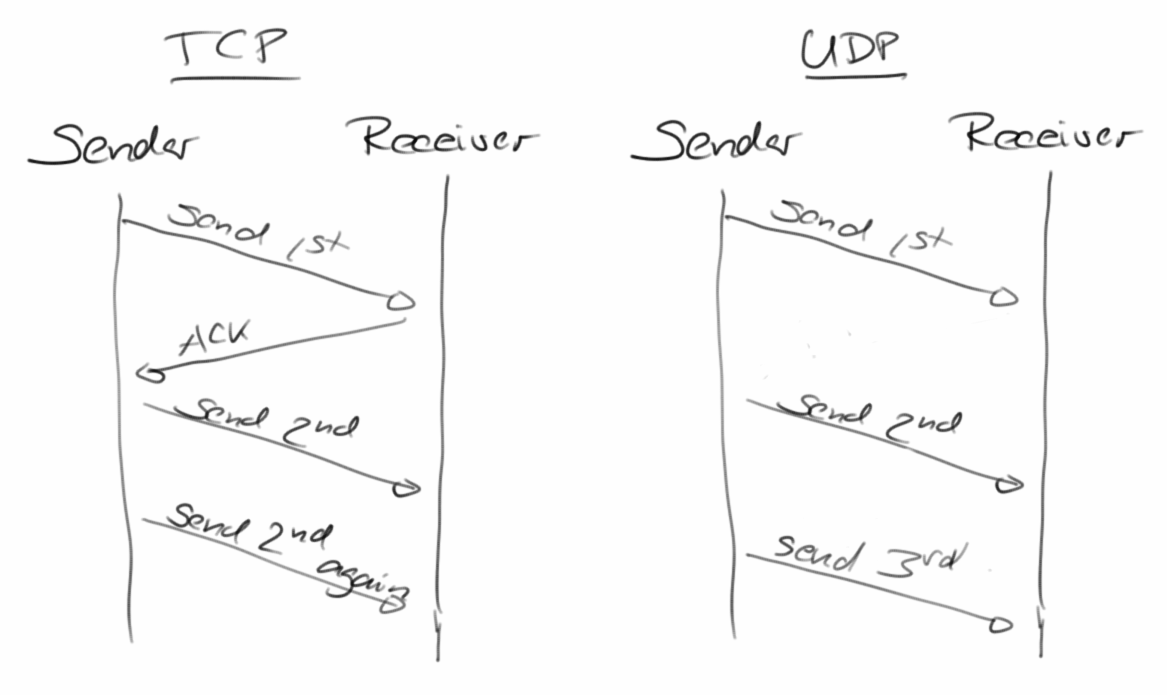 TCP
Sender Receiver
Send 1st
ACK
Send 2nd
Send 2nd
again
UDP
Sender Receiver
Send 1st
Send 2nd
send 3rd